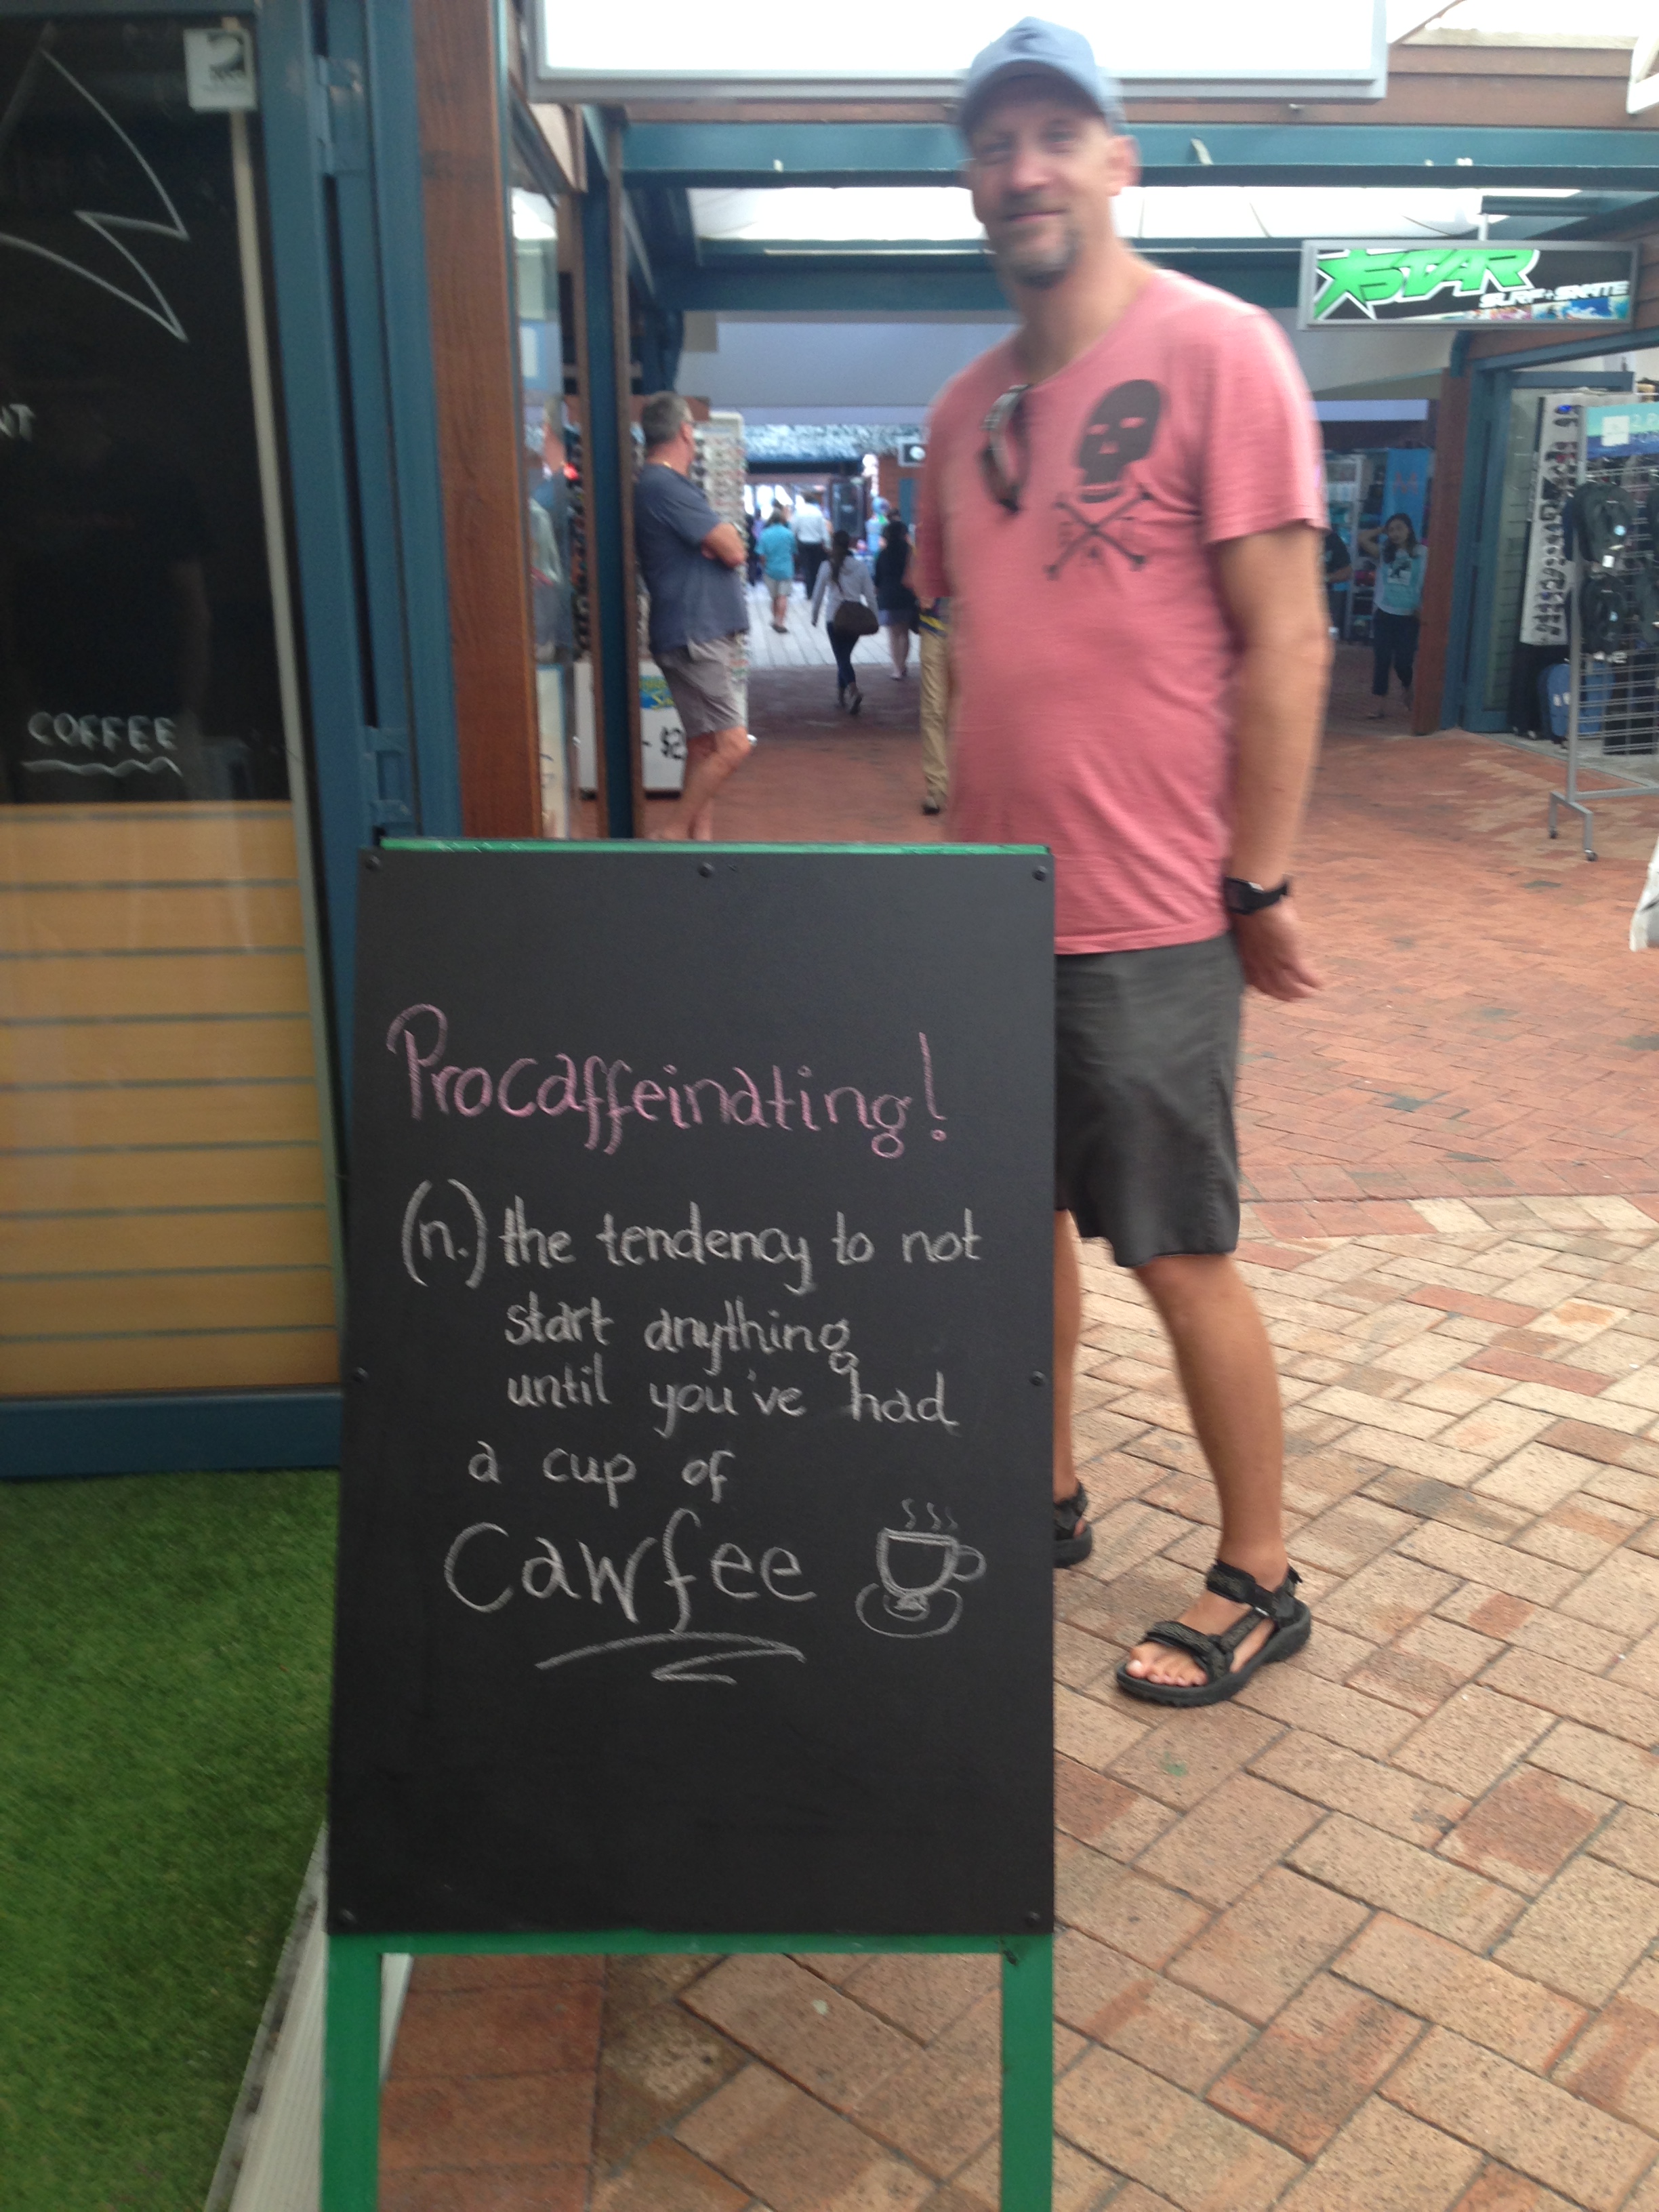 STAR
SURF + SKATE
NT
COFFEE
- $2
Procaffeinating!
(n.) the tendency to not
start anything
until you've had
a cup of
Cawfee